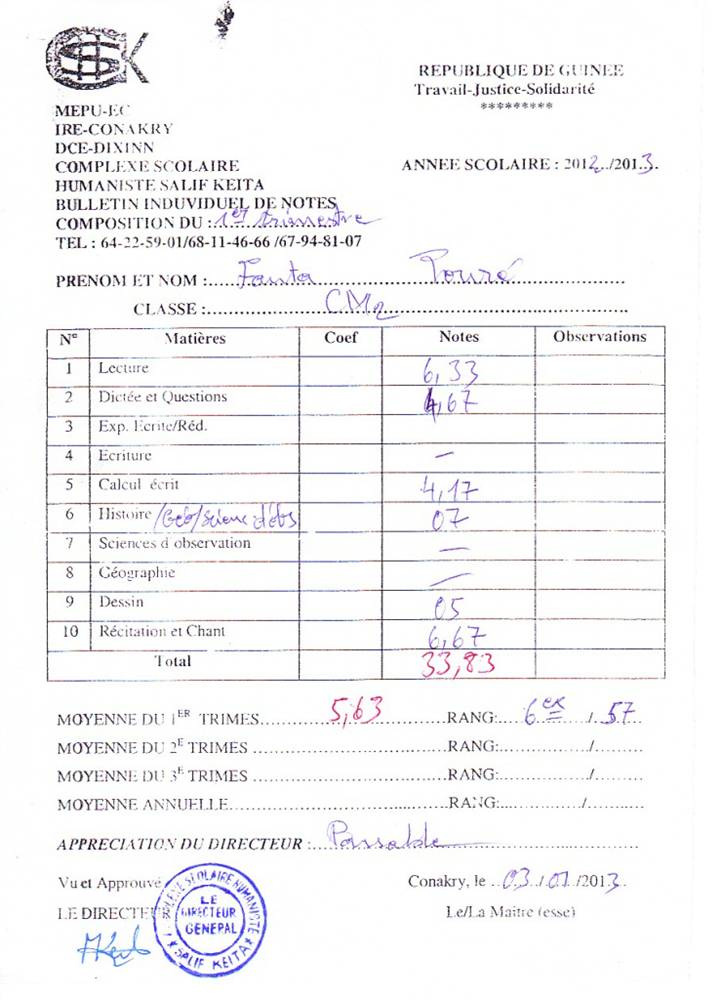 CHSK
REPUBLIQUE DE GUINEE
Travail-Justice-Solidarité
*********
MEPU-EC
IRE-CONAKRY
DCE-DIXINN
COMPLEXE SCOLAIRE
HUMANISTE SALIF KEITA
ANNEE SCOLAIRE : 2012../2013.
BULLETIN INDUVIDUEL DE NOTES
COMPOSITION DU : 1er trimestre
TEL : 64-22-59-01/68-11-46-66 /67-94-81-07
PRENOM ET NOM :..... Fanta Touré
CLASSE :..... CM2
N° Matières Coef Notes Observations
1 Lecture 6,33
2 Dictée et Questions 4,67
3 Exp. Ecrite/Réd.
4 Ecriture —
5 Calcul écrit 4,17
6 Histoire /Géo/Scienc d'obs 07
7 Sciences d observation —
8 Géographie —
9 Dessin 05
10 Récitation et Chant 6,67
Total 33,83
MOYENNE DU 1ER TRIMES..... 5,63 .....RANG:.... 6ex ..../. 57..
MOYENNE DU 2E TRIMES .....RANG:...../.....
MOYENNE DU 3E TRIMES .....RANG:...../.....
MOYENNE ANNUELLE.....RANG:...../.....
APPRECIATION DU DIRECTEUR :.. Passable
Vu et Approuvé
Conakry, le ..03../.01./2013.
LE DIRECTEUR
Le/La Maitre (esse)
COMPLEXE SCOLAIRE HUMANISTE
LE
DIRECTEUR
GENERAL
* SALIF KEITA *